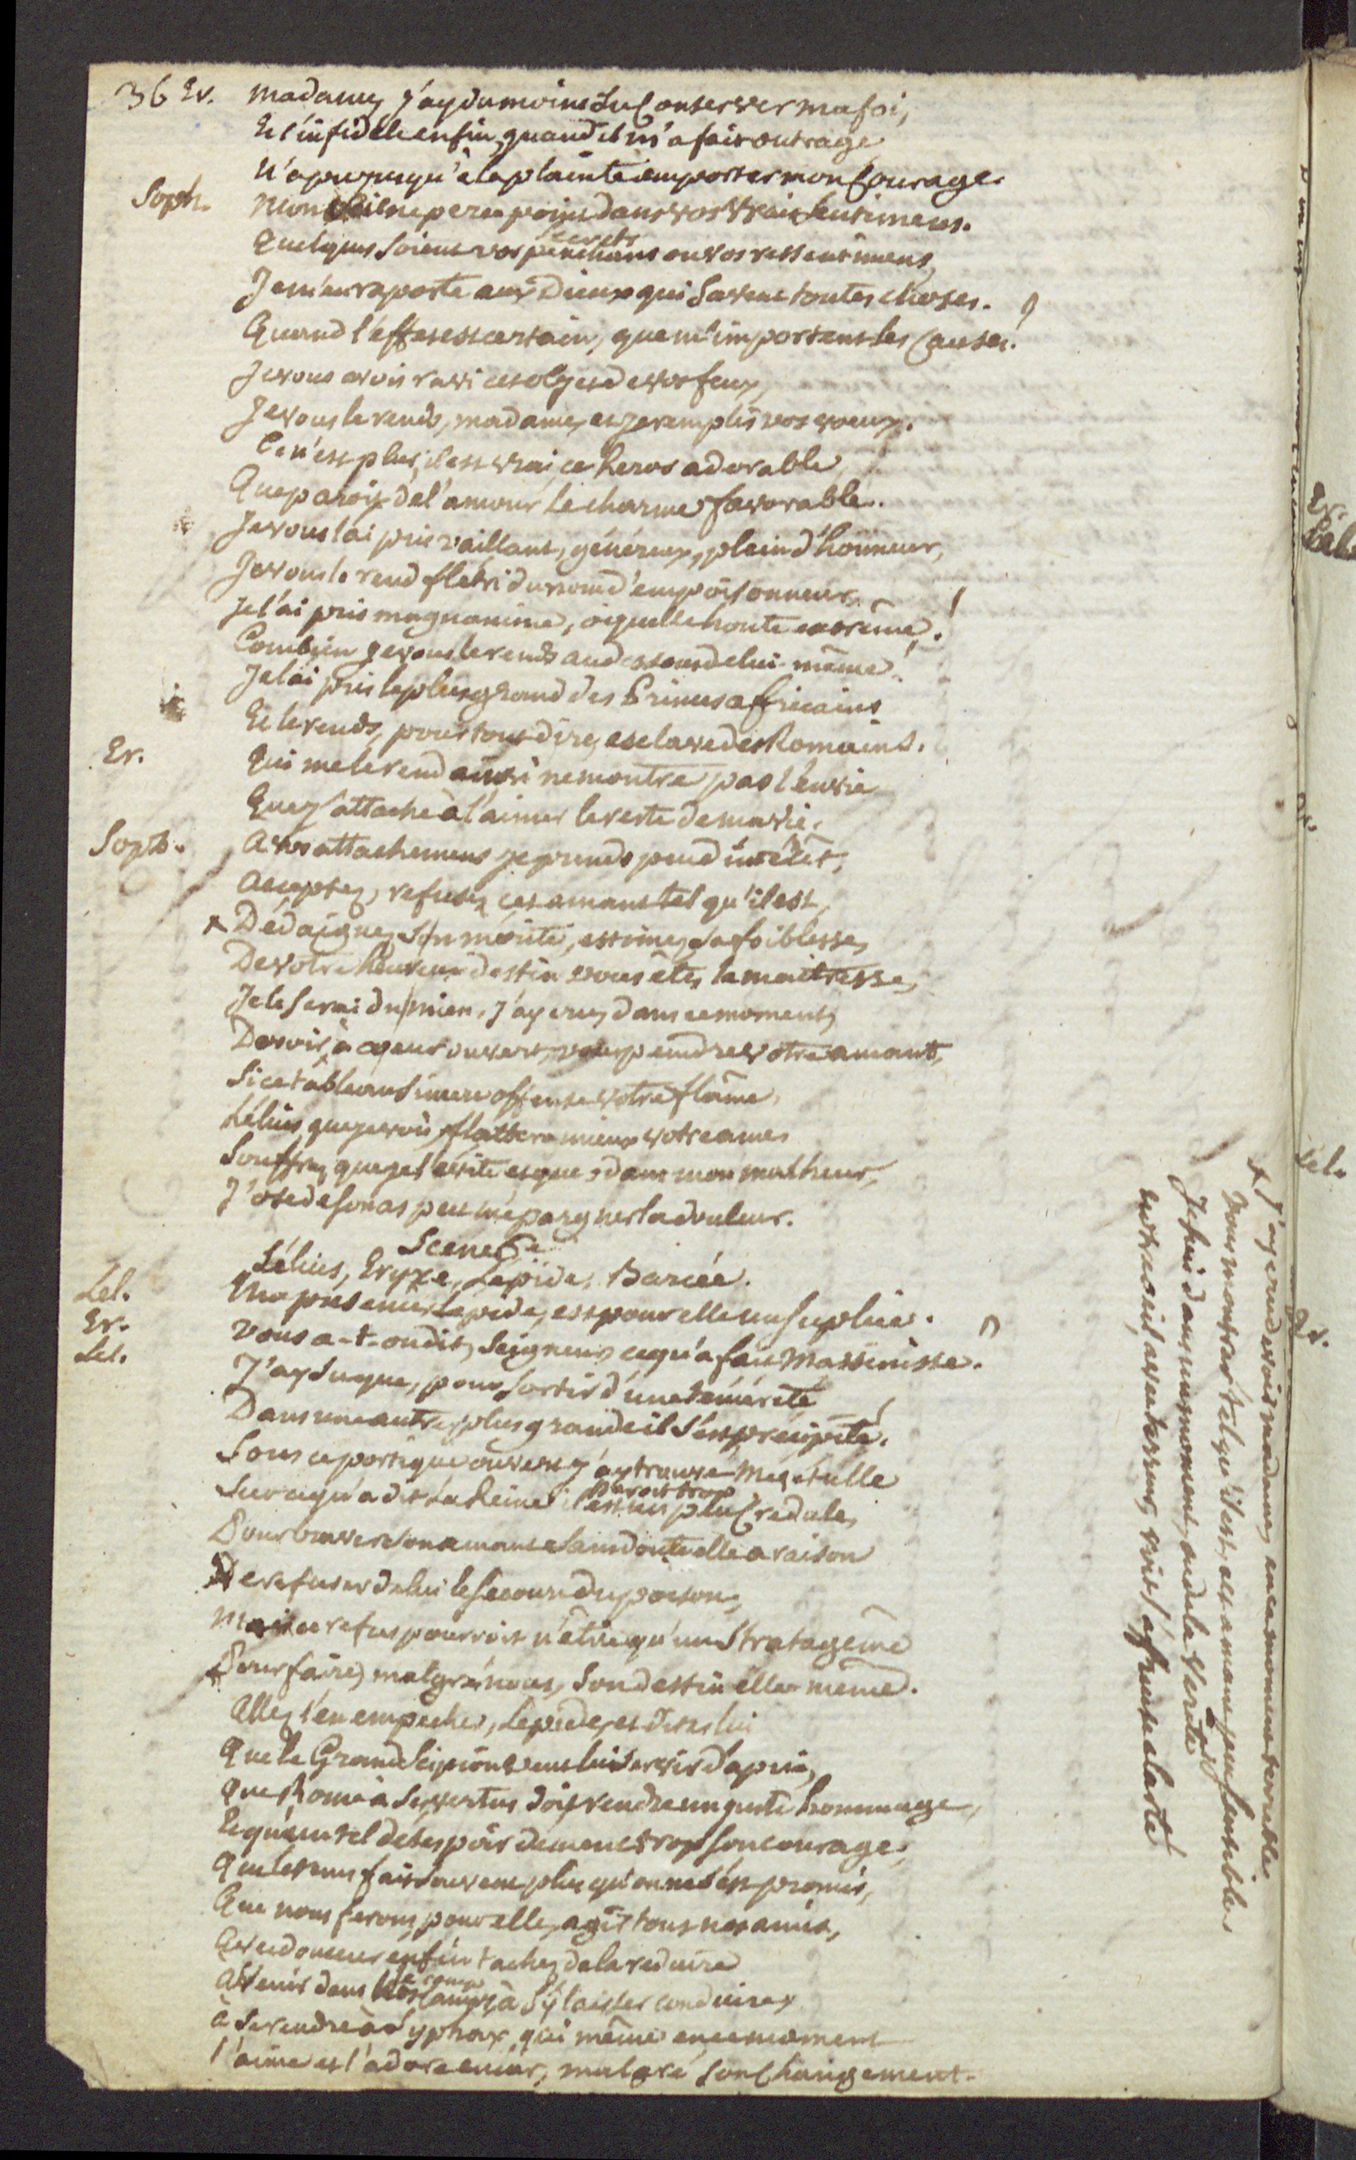 36 Er. madame, j'ay du moins su Conserver ma foi,
Et l'infidele enfin, quand il m'a fait outrage
N'a pu jusqu'à la plainte emporter mon Courage.
Soph. Mon œil ne perce point dans vos vrais sentimens.
secrets
Quelques soient vos penchans ou vos ressentimens,
Je m'en raporte aux Dieux qui savent toutes choses.
Quand l'effet est certain, que m'importent les Causes?
Je vous avois ravi cet objet de vos feux,
Je vous le rends, madame, et je remplis vos voeux.
Ce n'est plus, il est vrai, ce heros adorable
Que paroit de l'amour le charme favorable.
Je vous l'ai pris vaillant, généreux, plein d'honneur,
Je vous le rend flétri du nom d'empoisonneur,
Je l'ai pris magnanime, o! quelle honte extrême!
Combien je vous le rends au dessous de lui-même!
Je l'ai pris le plus grand des Princes africains
Et le rends, pour tout dire, esclave des Romains.
Er. Qui me le rend ainsi ne montre pas l'envie
Que j'attache à l'aimer le reste de ma vie.
Soph. A vos attachemens je prends peu d'intérêt,
Acceptez, refusez cet amant tel qu'il est,
+ Dédaignez son mérite, estimez sa foiblesse,
De votre heureux destin vous êtes la maitresse,
Je le serai du mien. J'ay cru, dans ce moment,
Devoir, à coeur ouvert, vous peindre votre amant,
Si ce tableau sincere offense votre flâme,
Lélius que je vois flattera mieux votre ame
Souffrez que je l'évite et que, dans mon malheur,
J'ose de son aspect m'épargner la douleur.
Scene 6e
Lélius, Eryxe, Lepide, Barcée.
Lel. Ma présence, Lepide, est pour elle un suplice.
Er. Vous a-t-on dit, Seigneur, ce qu'a fait Massinisse?
Lel. J'ay su que, pour sortir d'une témérité
Dans une autre plus grande il s'est précipité!
Sous ce portique ouvert j'ay trouvé Mezetulle
seroit trop
Sur ce qu'a dit la Reine il est un peu Credule,
Pour braver son amant sans doute elle a raison
De refuser de lui le secours du poison,
Mais ce refus pourroit n'être qu'un Stratagême
Pour faire, malgré nous, son destin elle même.
Allez l'en empecher, Lepide, et dites lui
Que le Grand Scipion veut lui servir d'apui,
Que Rome à ses vertus doit rendre un juste hommage,
Et qu'un tel desespoir dément trop son courage,
Que le tems fait souvent plus qu'on ne s'est promis,
Que nous ferons, pour elle, agir tous nos amis,
Avec douceur enfin tachez de la reduire
le camp
A venir dans nos camps, à s'y laisser conduire
à se rendre à Syphax, qui même en ce moment
l'aime et l'adore encor, malgré son Changement.
+ J'ay cru devoir, madame, en ce moment terrible
Vous montrer tel qu'il est, cet amant peu sensible.
Je fuis dans un moment, et de la vérité
Er.
Lel.
Er.